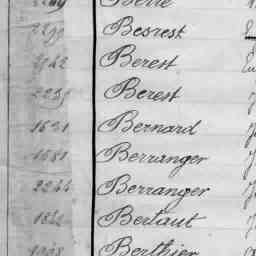 Berre
2299 Besrest
Berest
2235 Berest
1631 Bernard
1681 Berranger
2244 Berranger
1822 Bertaut
Berthier